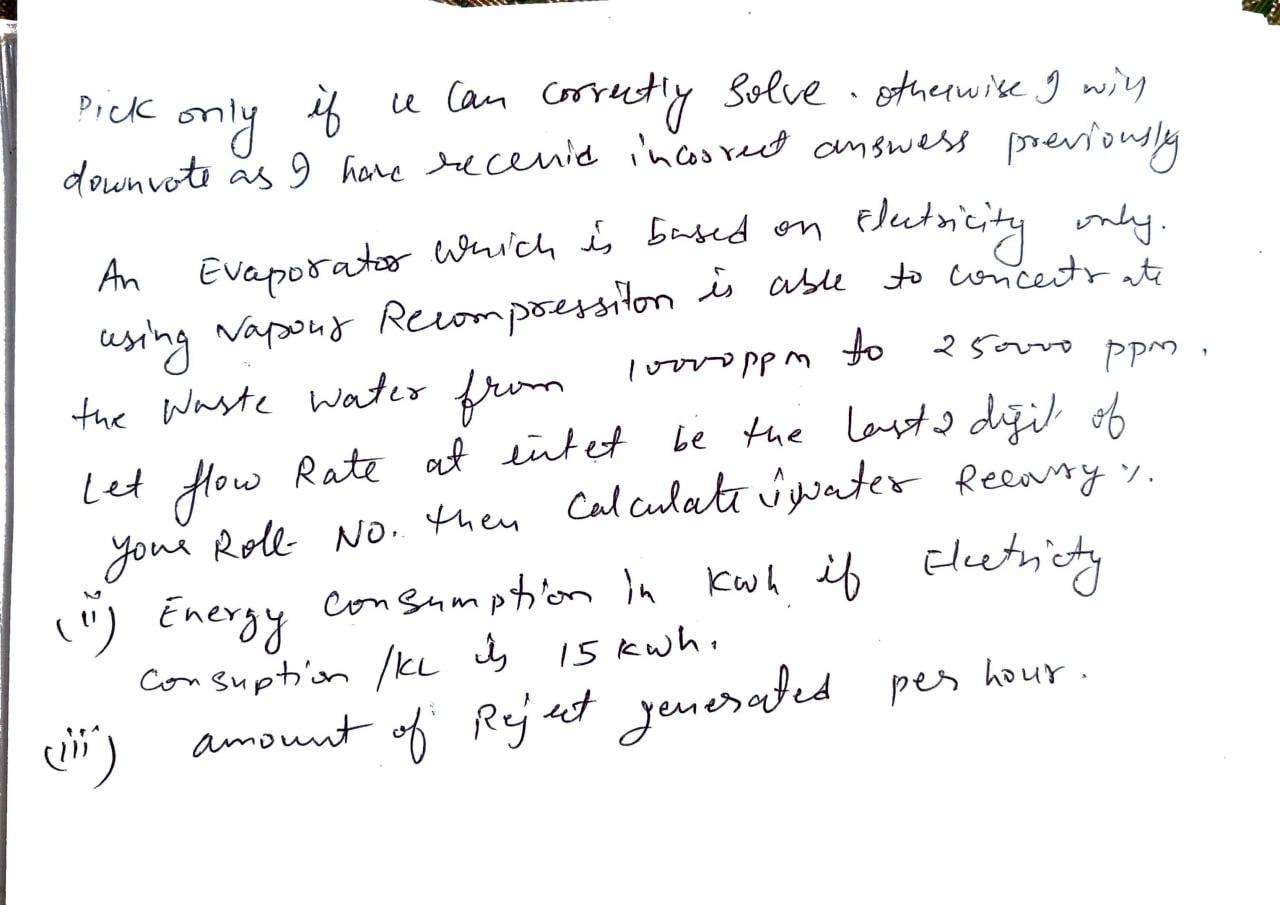 Pick only if u Can correctly Solve. otherwise I will
downvote as I have recevid incorrect answess previously
An Evaporator which is based on Electricity only.
using Vapour Recompression is able to concentrate
the Waste Water from 10000ppm to 250000 ppm.
Let flow Rate at inlet be the Last 2 digit of
your Roll No. then Calculate (i) water Recovry %.
(ii) Energy Consumption in Kwh if Electricty
Consuption /KL is 15 Kwh.
(iii) amount of Reject generated per hour.